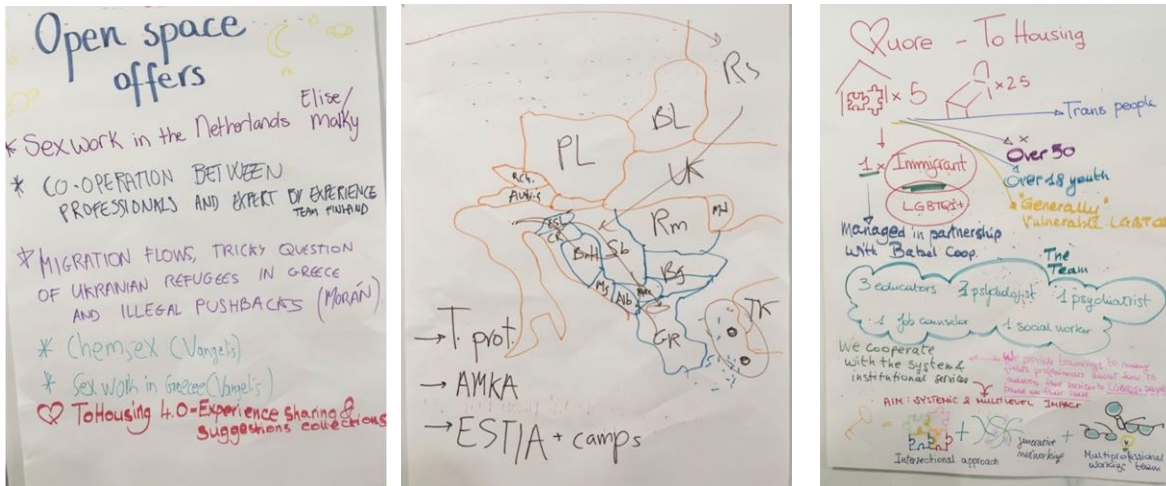 Open space
offers
* Sex work in the Netherlands Elise/
malky
* CO-OPERATION BETWEEN
PROFESSIONALS AND EXPERT BY EXPERIENCE
TEAM FINLAND
* MIGRATION FLOWS, TRICKY QUESTION
OF UKRANIAN REFUGEES IN GREECE
AND ILLEGAL PUSHBACKS (MORÁN)
* Chemsex (Vangelis)
* Sex work in Greece (Vangelis)
ToHousing 4.0-Experience sharing &
suggestions collections
Rs
BL
PL
UK
Rch.
Rm
Md
CR
BnH
Sb
Bg
Alb
GR
TK
→ T. prot.
→ AMKA
→ ESTIA + camps
Quore - To Housing
× 5
× 25
Trans people
Over 50
Over 18 youth
"Generally"
vulnerable LGBTQI
1 × Immigrant
LGBTQI+
managed in partnership
with Babel Coop.
The
Team
3 educators
psychologist
1 psychiatrist
1 job counselor
1 social worker
We cooperate
with the system &
institutional services
We provide trainings to many
AIM: SYSTEMIC & MULTILEVEL IMPACT
+
+
Intersectional approach
generative
networking
Multiprofessional
working team